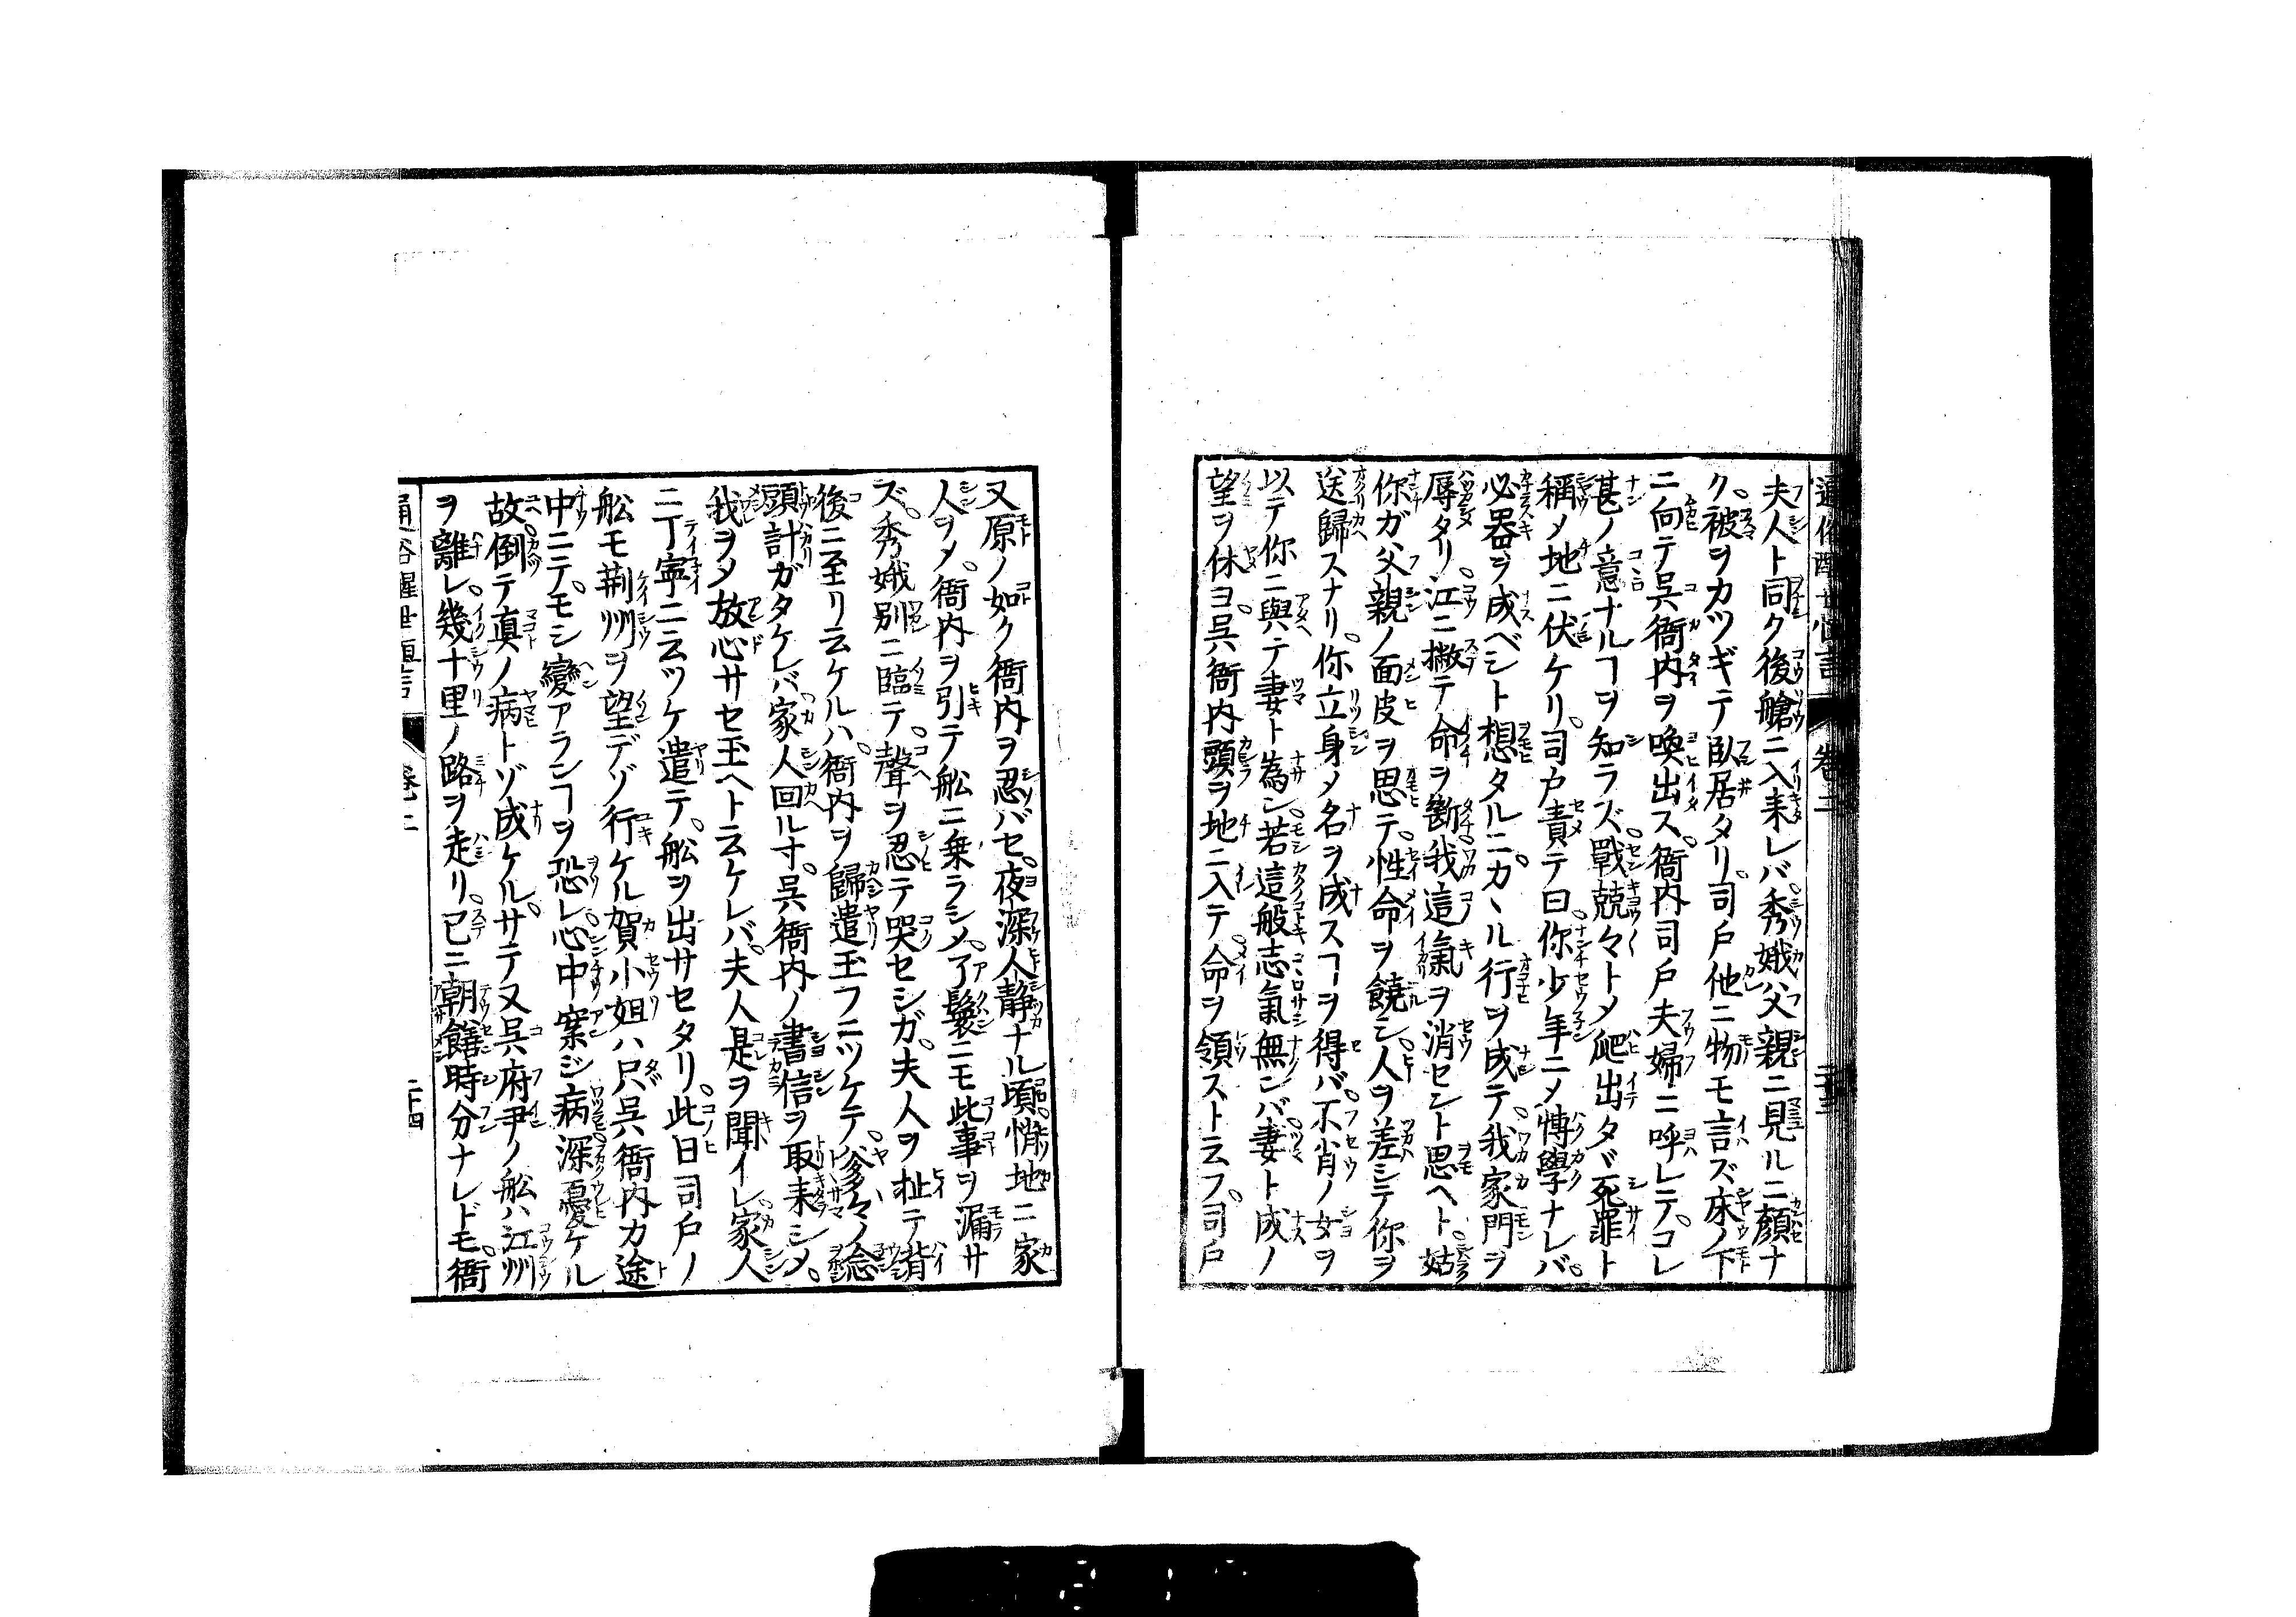 通俗醒世恒言 卷二 二十三
夫人ト同ク後艙ニ入来レバ。秀娥父親ニ見ルニ顔ナ
ク。被ヲカツギテ臥居タリ。司戸他ニ物モ言ズ床ノ下
ニ向テ呉衙内ヲ喚出ス。衙内司戸夫婦ニ呼レテ。コレ
甚ノ意ナルヿヲ知ラズ。戰兢々トメ爬出タヾ死罪ト
稱メ地ニ伏ケリ。司戸責テ曰。你少年ニメ博學ナレバ。
必器ヲ成ベシト想タルニ。カヽル行ヲ成テ。我家門ヲ
辱タリ。江ニ撇テ命ヲ斷。我這氣ヲ消セント思ヘト。姑
你ガ父親ノ面皮ヲ思テ。性命ヲ饒シ。人ヲ差シテ你ヲ
送歸スナリ。你立身メ名ヲ成スヿヲ得バ。不肖ノ女ヲ
以テ你ニ與テ妻ト為ン。若這般志氣無ンバ。妻ト成ノ
望ヲ休ヨ。呉衙内頭ヲ地ニ入テ。命ヲ領スト云フ。司戸
又原ノ如ク衙内ヲ忍バセ。夜深人静ナル頃。悄地ニ家
人ヲメ。衙内ヲ引テ舩ニ乗ラシメ。了鬟ニモ此事ヲ漏サ
ズ。秀娥別ニ臨テ。聲ヲ忍テ哭セシガ。夫人ヲ扯テ背
後ニ至リ云ケルハ。衙内ヲ歸遣玉フニツケテ。爹々ノ念
頭計ガタケレバ。家人回ル寸。呉衙内ノ書信ヲ取来シメ。
我ヲメ放心サセ玉ヘト云ケレバ。夫人是ヲ聞イレ。家人
ニ丁寧ニ云ツケ遣テ。舩ヲ出サセタリ。此日司戸ノ
舩モ荆州ヲ望デゾ行ケル賀小姐ハ只呉衙内カ途
中ニテ。モシ變アランヿヲ恐レ。心中案ジ病深憂ケル
故。倒テ真ノ病トゾ成ケル。サテ又呉府尹ノ舩ハ江州
ヲ離レ。幾十里ノ路ヲ走リ。已ニ朝饍時分ナレドモ。衙
通俗醒世恒言 卷二 二十四